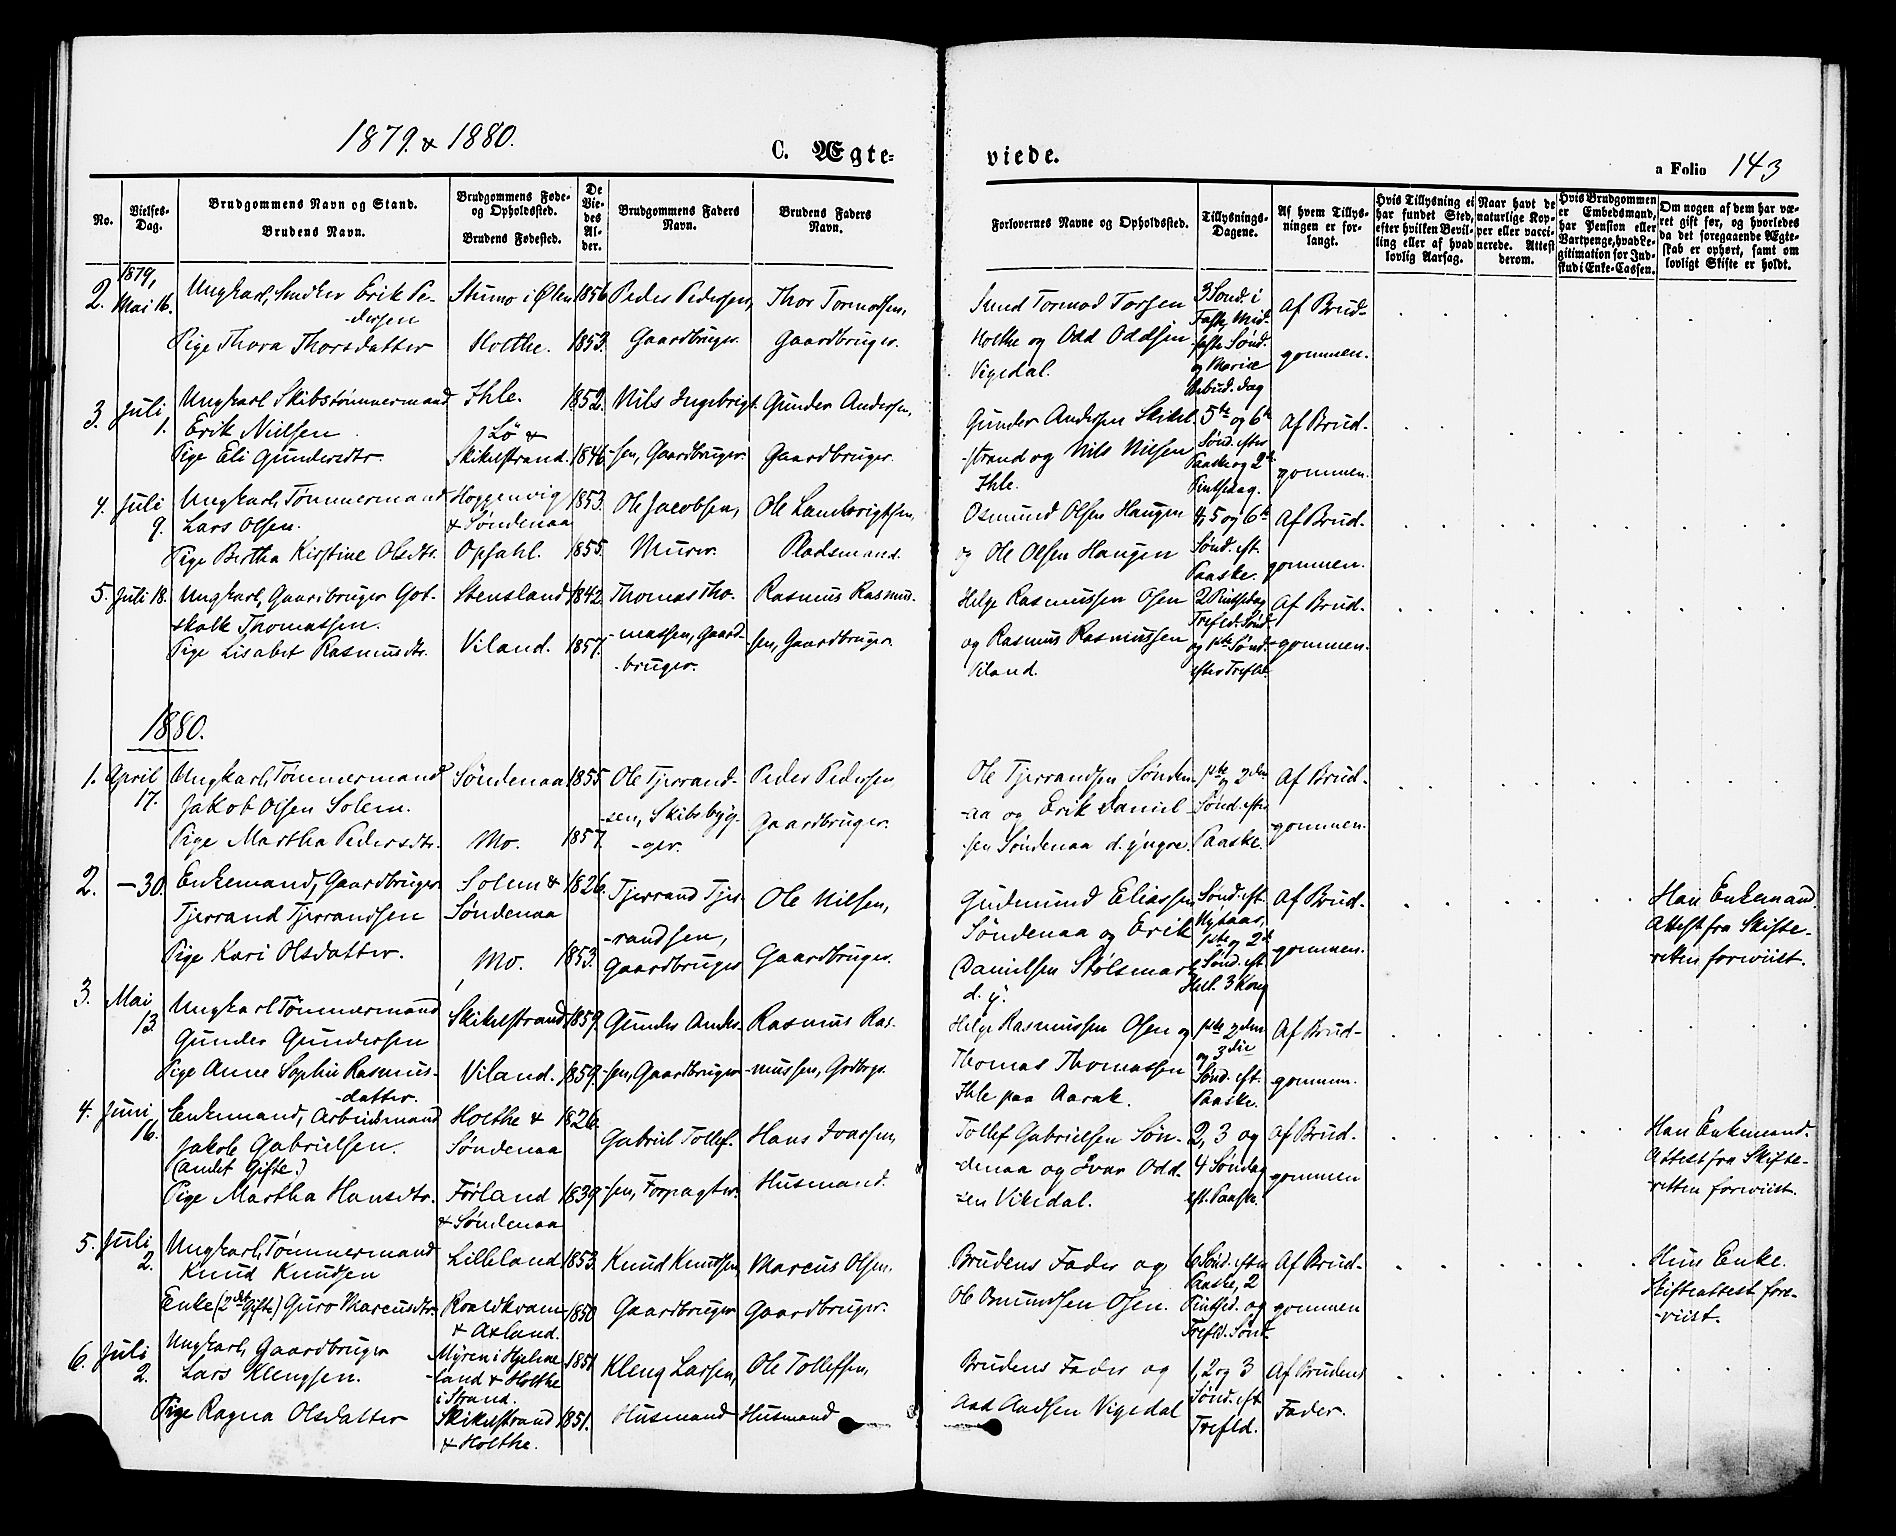 1879 & 1880.
C. Ægte=
viede.
a Folio 143
No.
Vielses-Dag.
Brudgommens Navn og Stand.
Brudens Navn.
Brudgommens Føde- og Opholdssted.
Brudens Fødested.
De Viedes Alder.
Brudgommens Faders Navn.
Brudens Faders Navn.
Forlovernes Navne og Opholdssted.
Tillysnings-Dagene.
Af hvem Tillysningen er forlangt.
Hvis Tillysning ei har fundet Sted, efter hvilken Bevilling eller af hvad lovlig Aarsag.
Naar havt de naturlige Kopper eller vaccinerede. Attest derom.
Hvis Brudgommen er Embedsmand, har Pension eller Vartpenge, hvad Legitimation for Indskud i Enke-Cassen.
Om nogen af dem har været gift før, og hvorledes da det foregaaende Ægteskab er ophørt, samt om lovligt Skifte er holdt.
1879,
2. Mai 16. Ungkarl, Snedker Erik Pe-
-dersen
Stumo i Ølen 1856 Peder Pedersen, Thor Tormodsen,
Pige Thora Thorsdatter Holthe. 1853. Gaardbruger. Gaardbruger.
Svend Tormod Torsen
Holthe og Odd Oddsen
Vigedal.
3 Sønd. i
Faste, Mid-
faste Sønd.
og Mariæ
Bebud. dag
Af Brud-
gommen.
3. Juli
1.
Ungkarl Skibstømmermand
Erik Nielsen
Pige Eli Gundersdtr.
Ihle.
Lö &
Skikelstrand.
1852.
1846
Nils Ingebrigt-
-sen, Gaardbruger.
Gunder Andersen,
Gaardbruger.
Gunder Andersen Skikel-
-strand og Nils Nilsen
Ihle.
5te og 6te
Sønd. efter
Paaske og 2d.
Pintsedag.
Af Brud-
gommen.
4. Juli
9.
Ungkarl, Tømmermand
Lars Olsen.
Pige Bertha Kirstine Olsdtr.
Hoggenvig
& Søndenaa
Opsahl.
1853.
1855.
Ole Jacobsen,
Murer.
Ole Lambrigtsen,
Pladsmand.
Osmund Olsen Haugen
og Ole Olsen Haugen
4, 5 og 6te
Sønd. eft.
Paaske.
Af Brud-
gommen.
5. Juli 18.
Ungkarl, Gaardbruger Got-
skalk Thomassen.
Pige Lisabet Rasmusdtr.
Stensland
Viland.
1842
1857.
Thomas Tho-
-massen, Gaard-
-bruger.
Rasmus Rasmus-
sen, Gaardbruger.
Helge Rasmussen Osen
og Rasmus Rasmussen
Viland.
2 Pintsedag
Trefld. Sønd.
og 1ste Sønd.
efter Trefld.
Af Brud-
-gommen.
1880.
1. April
17.
Ungkarl, Tømmermand
Jakob Olsen Solem.
Pige Martha Pedersdtr.
Søndenaa
Mo.
1855.
1857.
Ole Tjerrand-
sen, Skibsbyg-
-ger.
Peder Pedersen,
Gaardbruger.
Ole Tjerrandsen Sønden-
-aa og Erik Daniel-
-sen Søndenaa d. yngre.
1ste og 2den
Sønd. efter
Paaske.
Af Brud-
-gommen.
2. -30.
Enkemand, Gaardbruger
Tjerrand Tjerrandsen
Pige Kari Olsdatter.
Solem &
Søndenaa
Mo.
1826.
1853.
Tjerrand Tjer-
-randsen,
Gaardbruger
Ole Nilsen,
Gaardbruger.
Gudmund Eliassen
Søndenaa og Erik
Danielsen Stølsmark
d. y.
Sønd. eft.
Nytaar,
1ste og 2d
Sønd. eft.
Hel. 3 Kong
Af Brud-
gommen.
Han Enkemand.
Attest fra Skifte-
-retten foreviist.
3. Mai
13.
Ungkarl Tømmermand
Gunder Gundersen
Pige Anne Sophie Rasmus-
-datter.
Skikelstrand
Viland.
1859.
1859.
Gunder Ander-
-sen, Gaardbruger
Rasmus Ras-
-mussen, Grdbrgr.
Helge Rasmussen Osen og
Thomas Thomassen
Ihle paa Aarak.
1ste 2den
og 3die
Sønd. eft.
Paaske.
Af Brud-
gommen.
4. Juni
16.
Enkemand, Arbeidsmand
Jakob Gabrielsen.
(Andet Gifte.)
Pige Martha Hansdtr.
Holthe &
Søndenaa
Førland
& Søndenaa
1826.
1839.
Gabriel Tollef-
-sen, Forpagter.
Hans Ivarsen,
Husmand.
Tollef Gabrielsen Søn-
-denaa og Ivar Odd-
-sen Vikedal.
2, 3 og
4 Søndag
eft. Paaske.
Af Brud-
gommen
Han Enkemand.
Attest fra Skifte-
-retten foreviist.
5. Juli
2.
Ungkarl, Tömmermand
Knud Knudsen
Enke (2det Gifte) Guro Marcusdtr.
Lilleland
Roaldkvam
& Axland.
1853.
1850
Knud Knudsen,
Gaardbruger
Marcus Olsen,
Gaardbruger.
Brudens Fader og
Ole Omundsen Osen.
6 Sønd. efter
Paaske, 2
Pintsed. og
Trefld. Sønd.
Af Brud-
gommen
Hun Enke.
Skifteattest fore-
-viist.
6. Juli
2.
Ungkarl, Gaardbruger
Lars Klengsen.
Pige Ragna Olsdatter
Myren i Hjelme-
-land & Holthe
i Strand.
Skikelstrand
& Holthe.
1851.
1851.
Kleng Larsen,
Husmand
Ole Tollefsen,
Husmand
Brudens Fader og
Aad Aadsen Vigedal
1, 2 og 3
Sønd. eft.
Trefld.
Af Brudens
Fader.